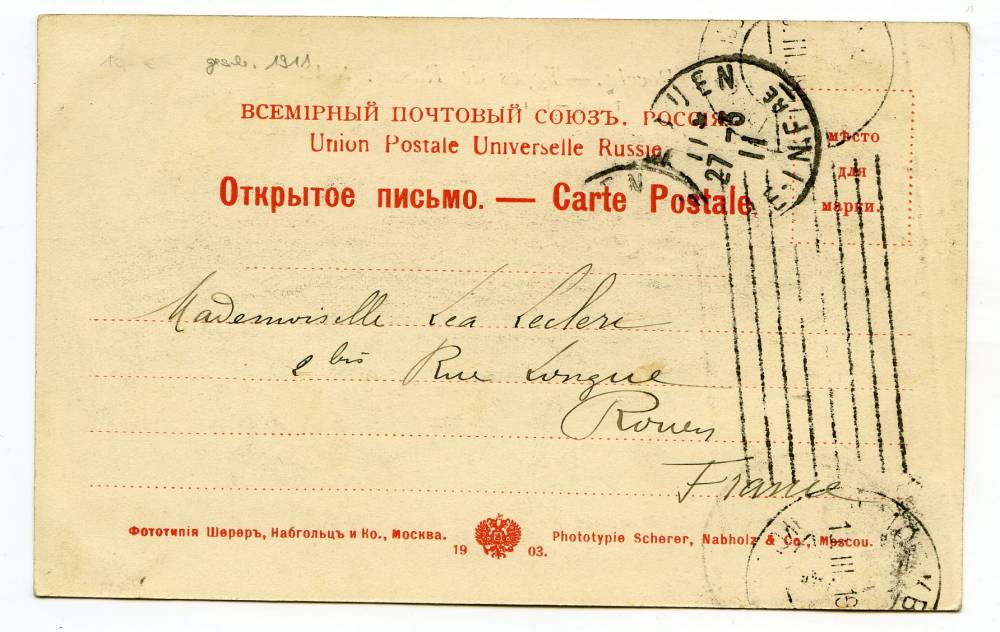 1911.
ВСЕМІРНЫЙ ПОЧТОВЫЙ СОЮЗЪ. РОССІЯ.
Union Postale Universelle Russie.
Открытое письмо. — Carte Postale
мѣсто
для
марки.
UEN
27 - 3
11
INFRE
Mademoiselle Léa Leclerc
2 bis Rue Longue
Rouen
France
Фототипія Шереръ, Набгольцъ и Ко., Москва.
19 03.
Phototypie Scherer, Nabholz & Co., Moscou.